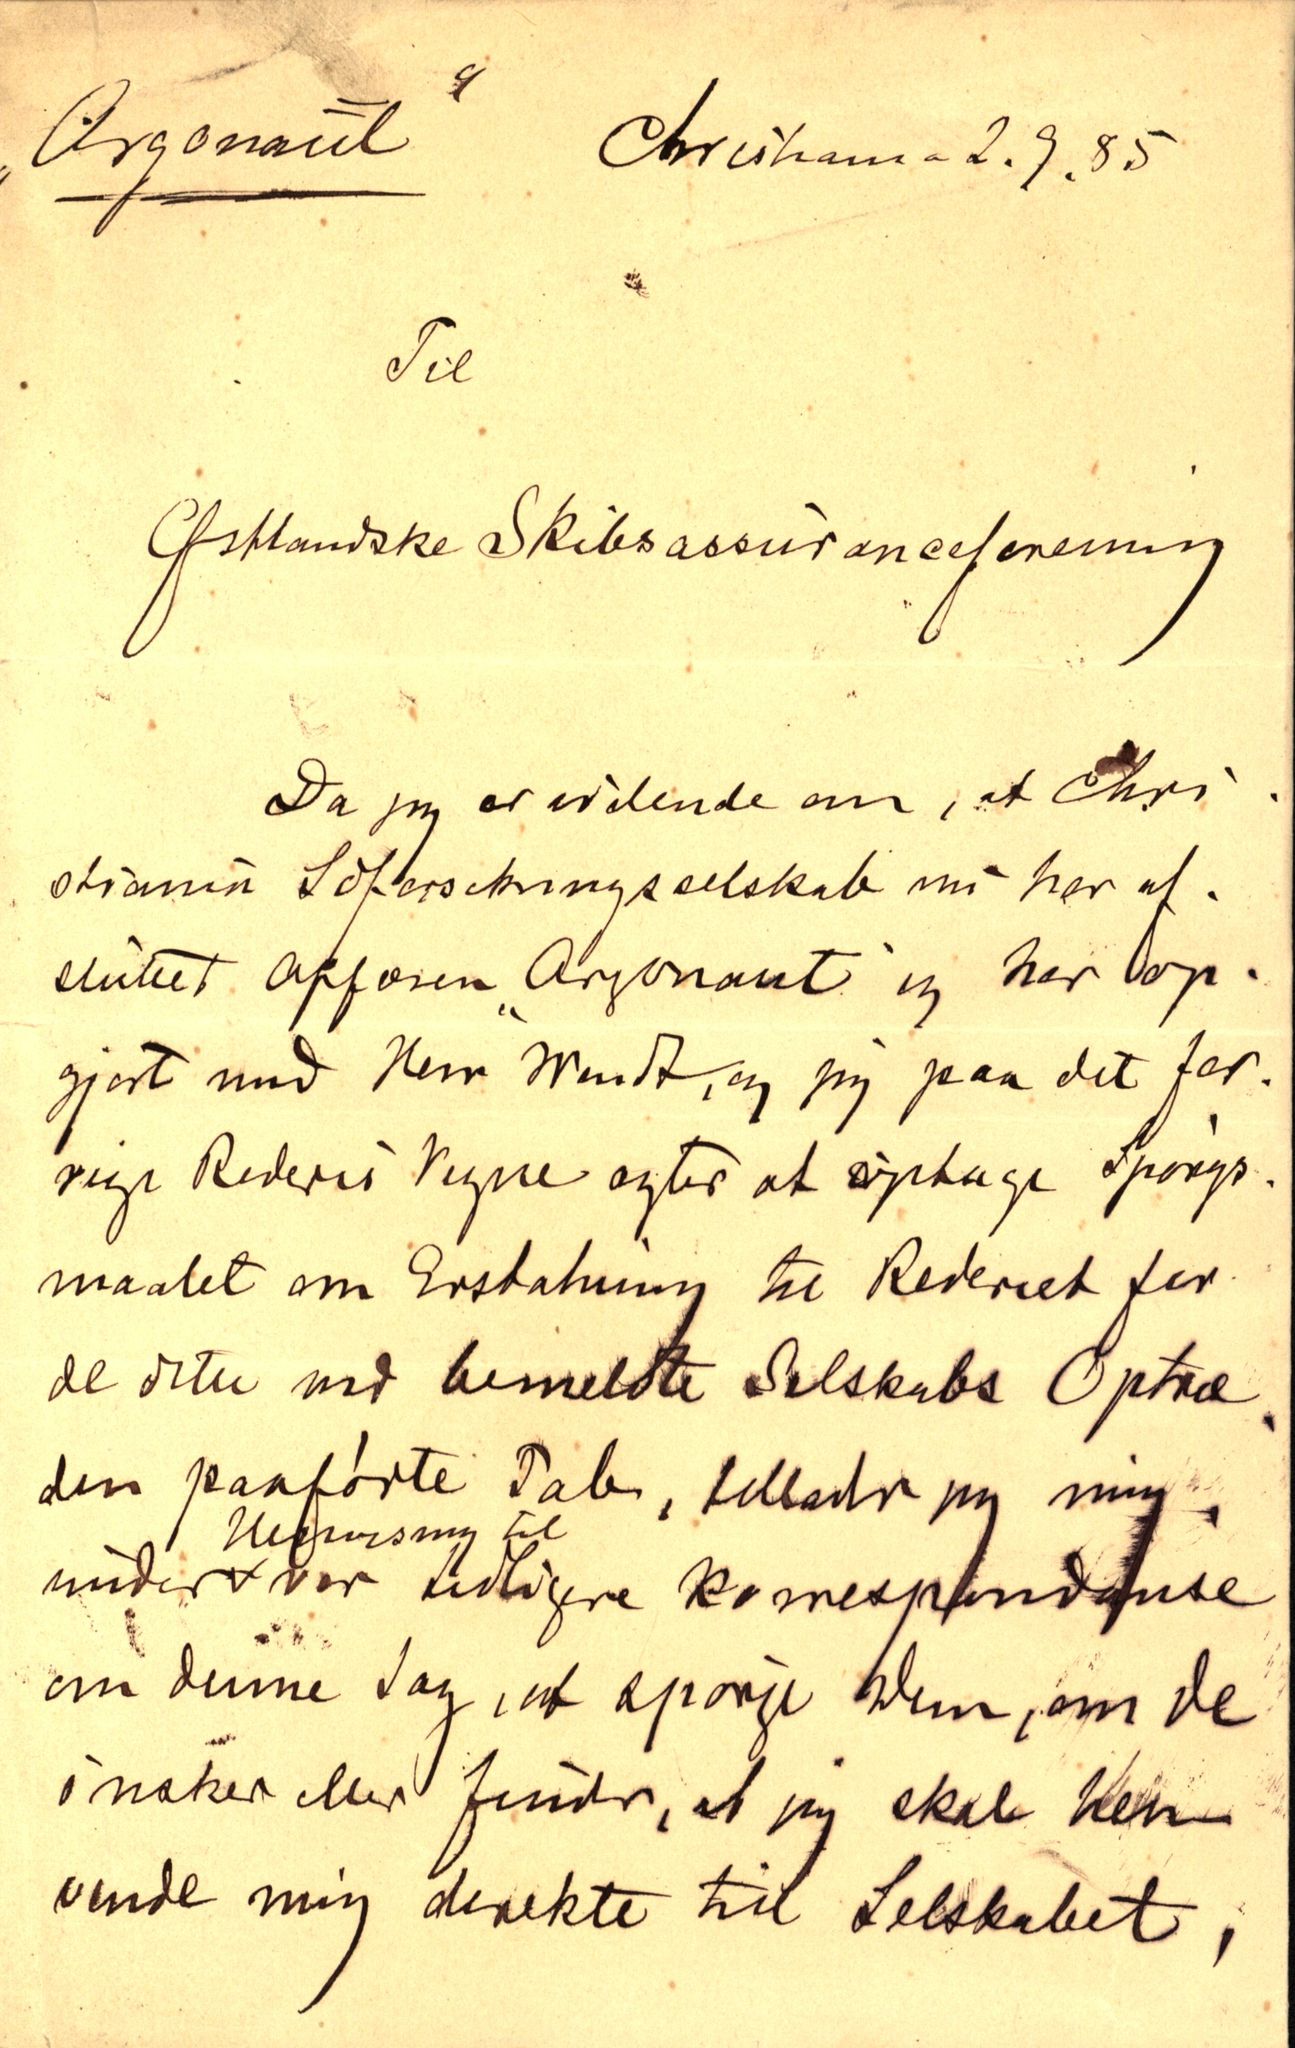 „Argonaut“ Christiania 2.9.85
Til
Østlandske Skibsassuranceforening
Da jeg er vidende om, at Chri-
stiania Söforsikringsselskab nu har af-
sluttet Affæren „Argonaut“ og har op-
gjort med Herr Wendt, og jeg paa det for-
rige Rederis Vegne agter at optage Spörgs-
maalet om Erstatning til Rederiet for
de dette ved bemeldte Selskabs Optræ-
den paaförte Tab, tillader jeg mig,
Henvisning til
under × vor tidligere Korrespondanse
om denne Sag, at spörge Dem, om De
önsker eller finder, at jeg skal hen-
vende mig direkte til Selskabet,